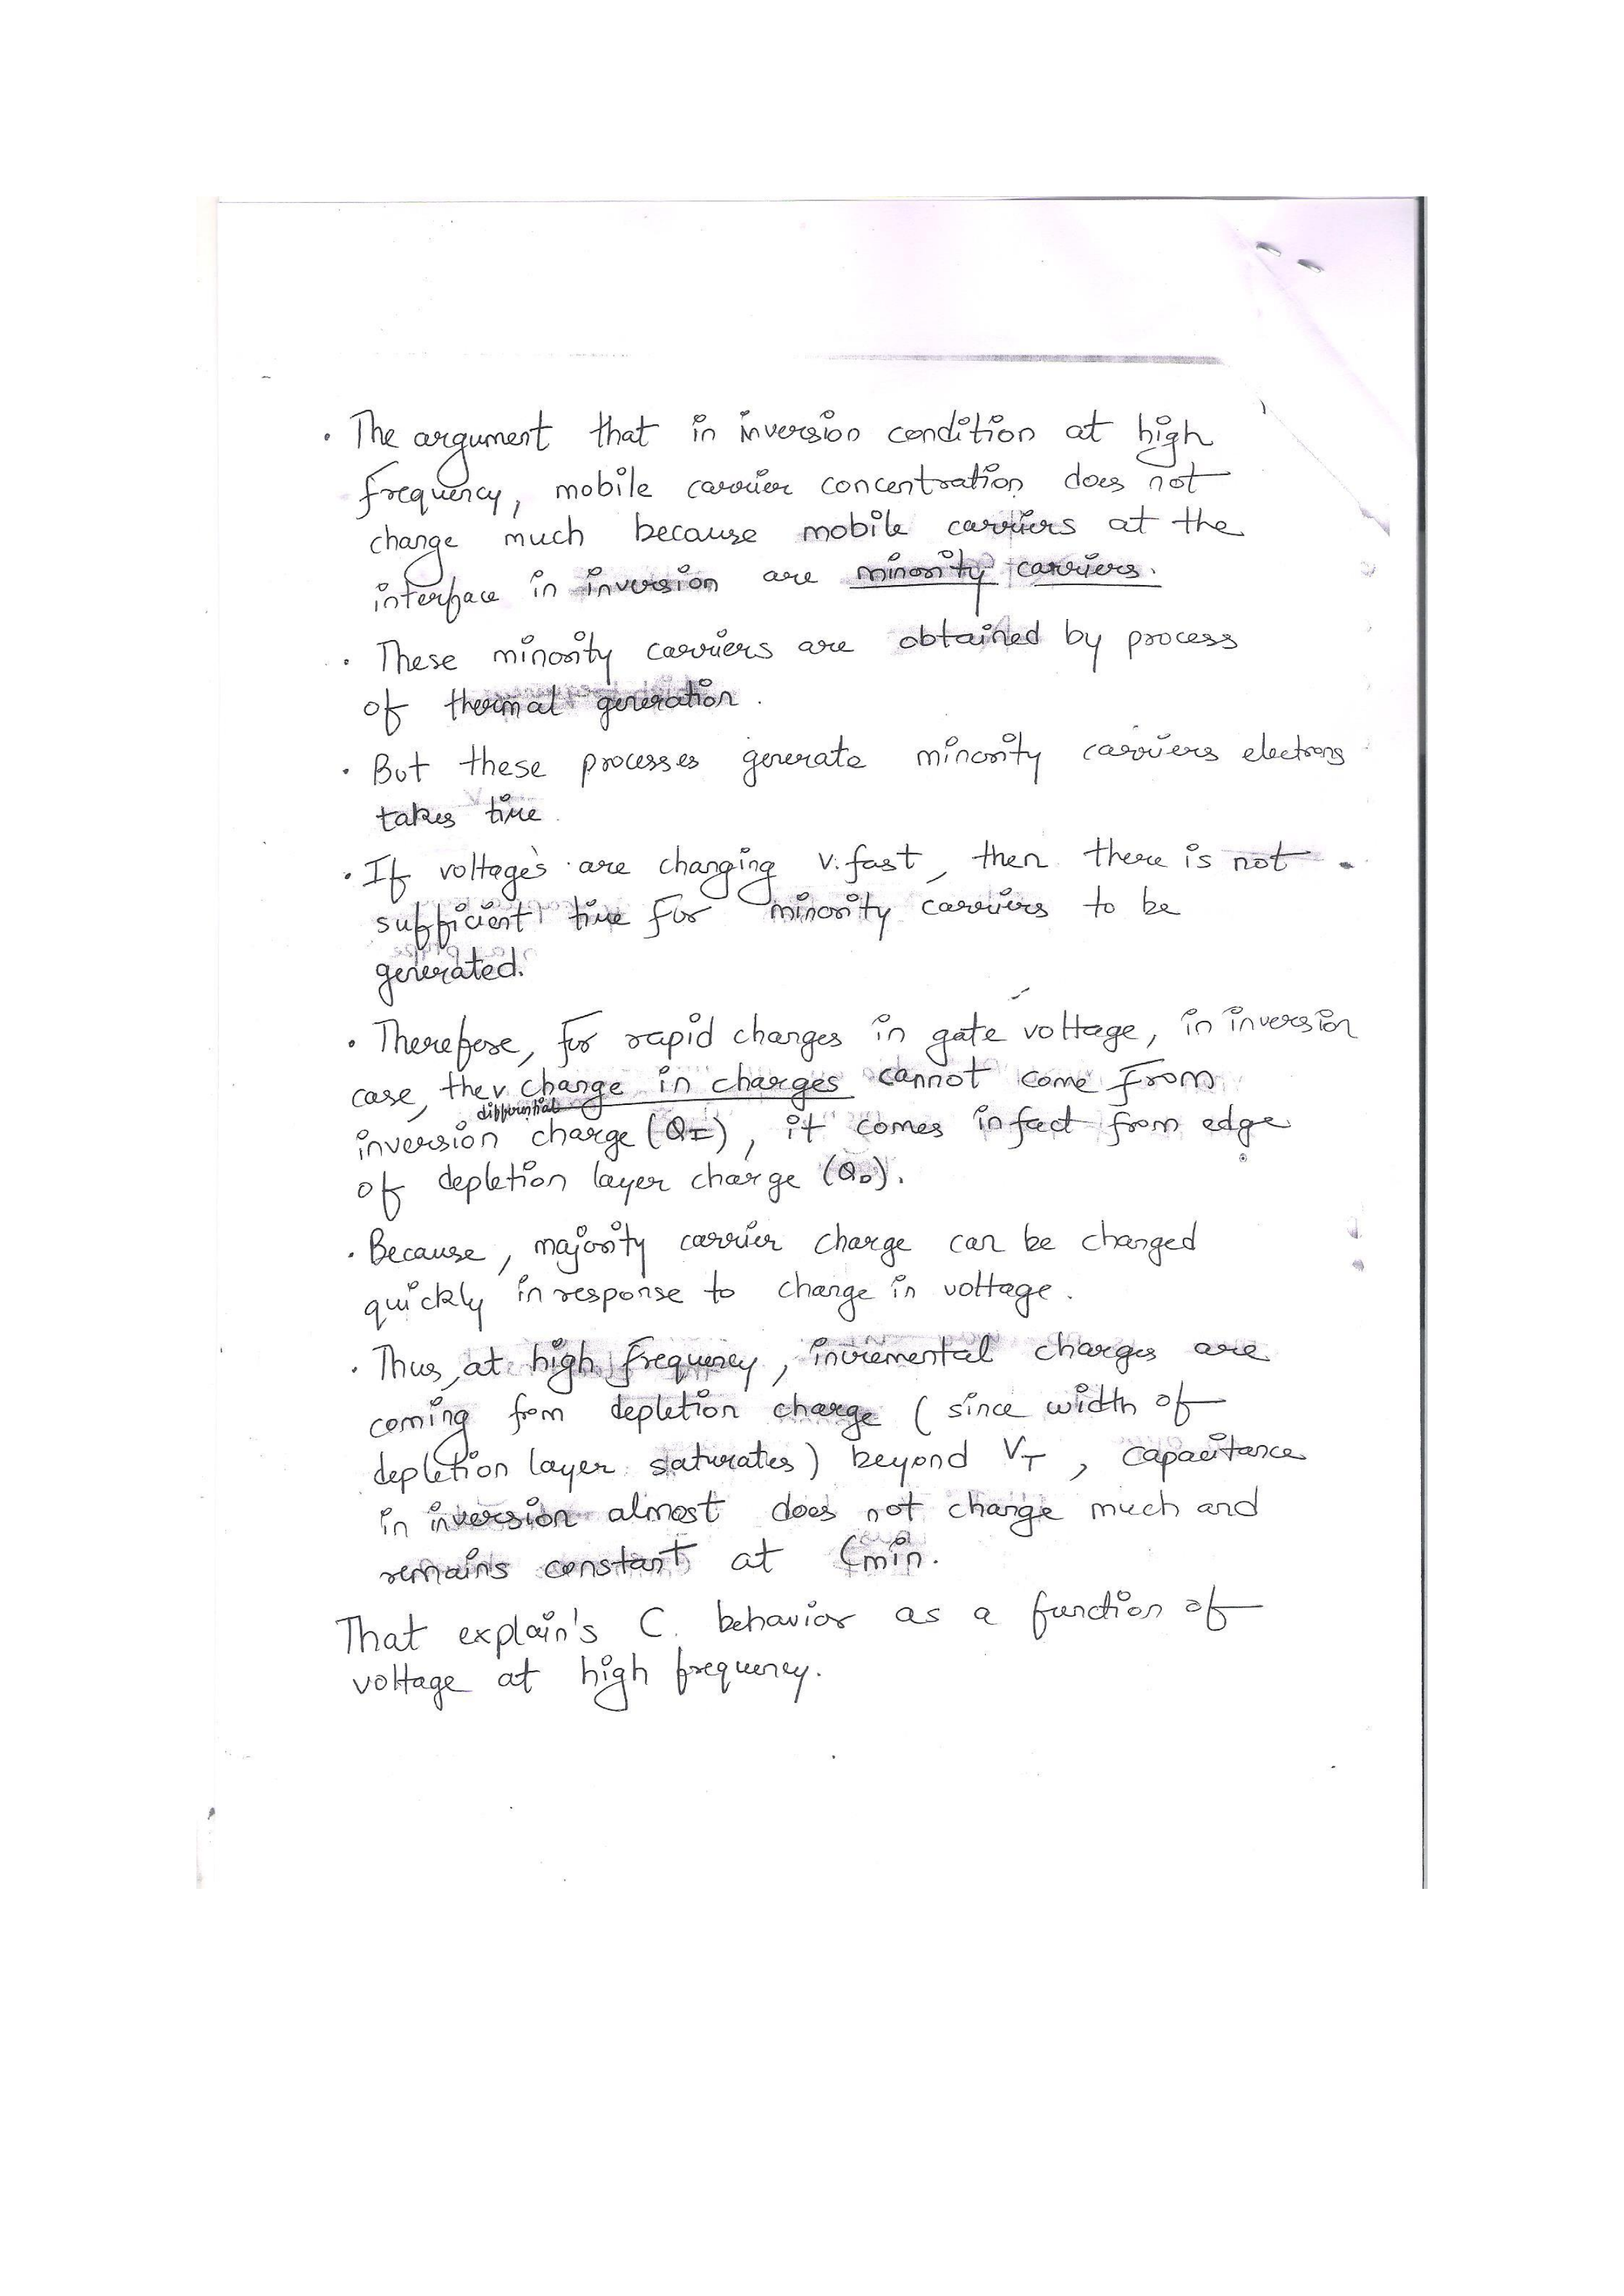 . The argument that in inversion condition at high
frequency, mobile carrier concentration does not
change much because mobile carriers at the
interface in inversion are minority carriers.
. These minority carriers are obtained by process
of thermal generation.
. But these processes generate minority carriers electrons
takes time.
. If voltages are changing v. fast, then there is not
sufficient time for minority carriers to be
generated.
. Therefore, for rapid changes in gate voltage, in inversion
case, the change in charges cannot come from
differential
inversion charge (QI), it comes infact from edge
of depletion layer charge (QD).
. Because, majority carrier charge can be changed
quickly in response to change in voltage.
. Thus, at high frequency, incremental charges are
coming from depletion charge (since width of
depletion layer saturates) beyond VT, capacitance
in inversion almost does not change much and
remains constant at Cmin.
That explain's C. behavior as a function of
voltage at high frequency.